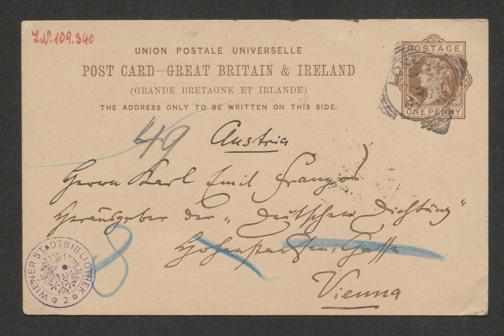 I.N. 109.340
UNION POSTALE UNIVERSELLE
POST CARD—GREAT BRITAIN & IRELAND
(GRANDE BRETAGNE ET IRLANDE)
THE ADDRESS ONLY TO BE WRITTEN ON THIS SIDE.
POSTAGE
ONE PENNY
49
Austria
Herrn Karl Emil Franzos
Herausgeber der „Deutschen Dichtung"
Gasse
Vienna
8
WIENER STADTBIBLIOTHEK
* 2 *